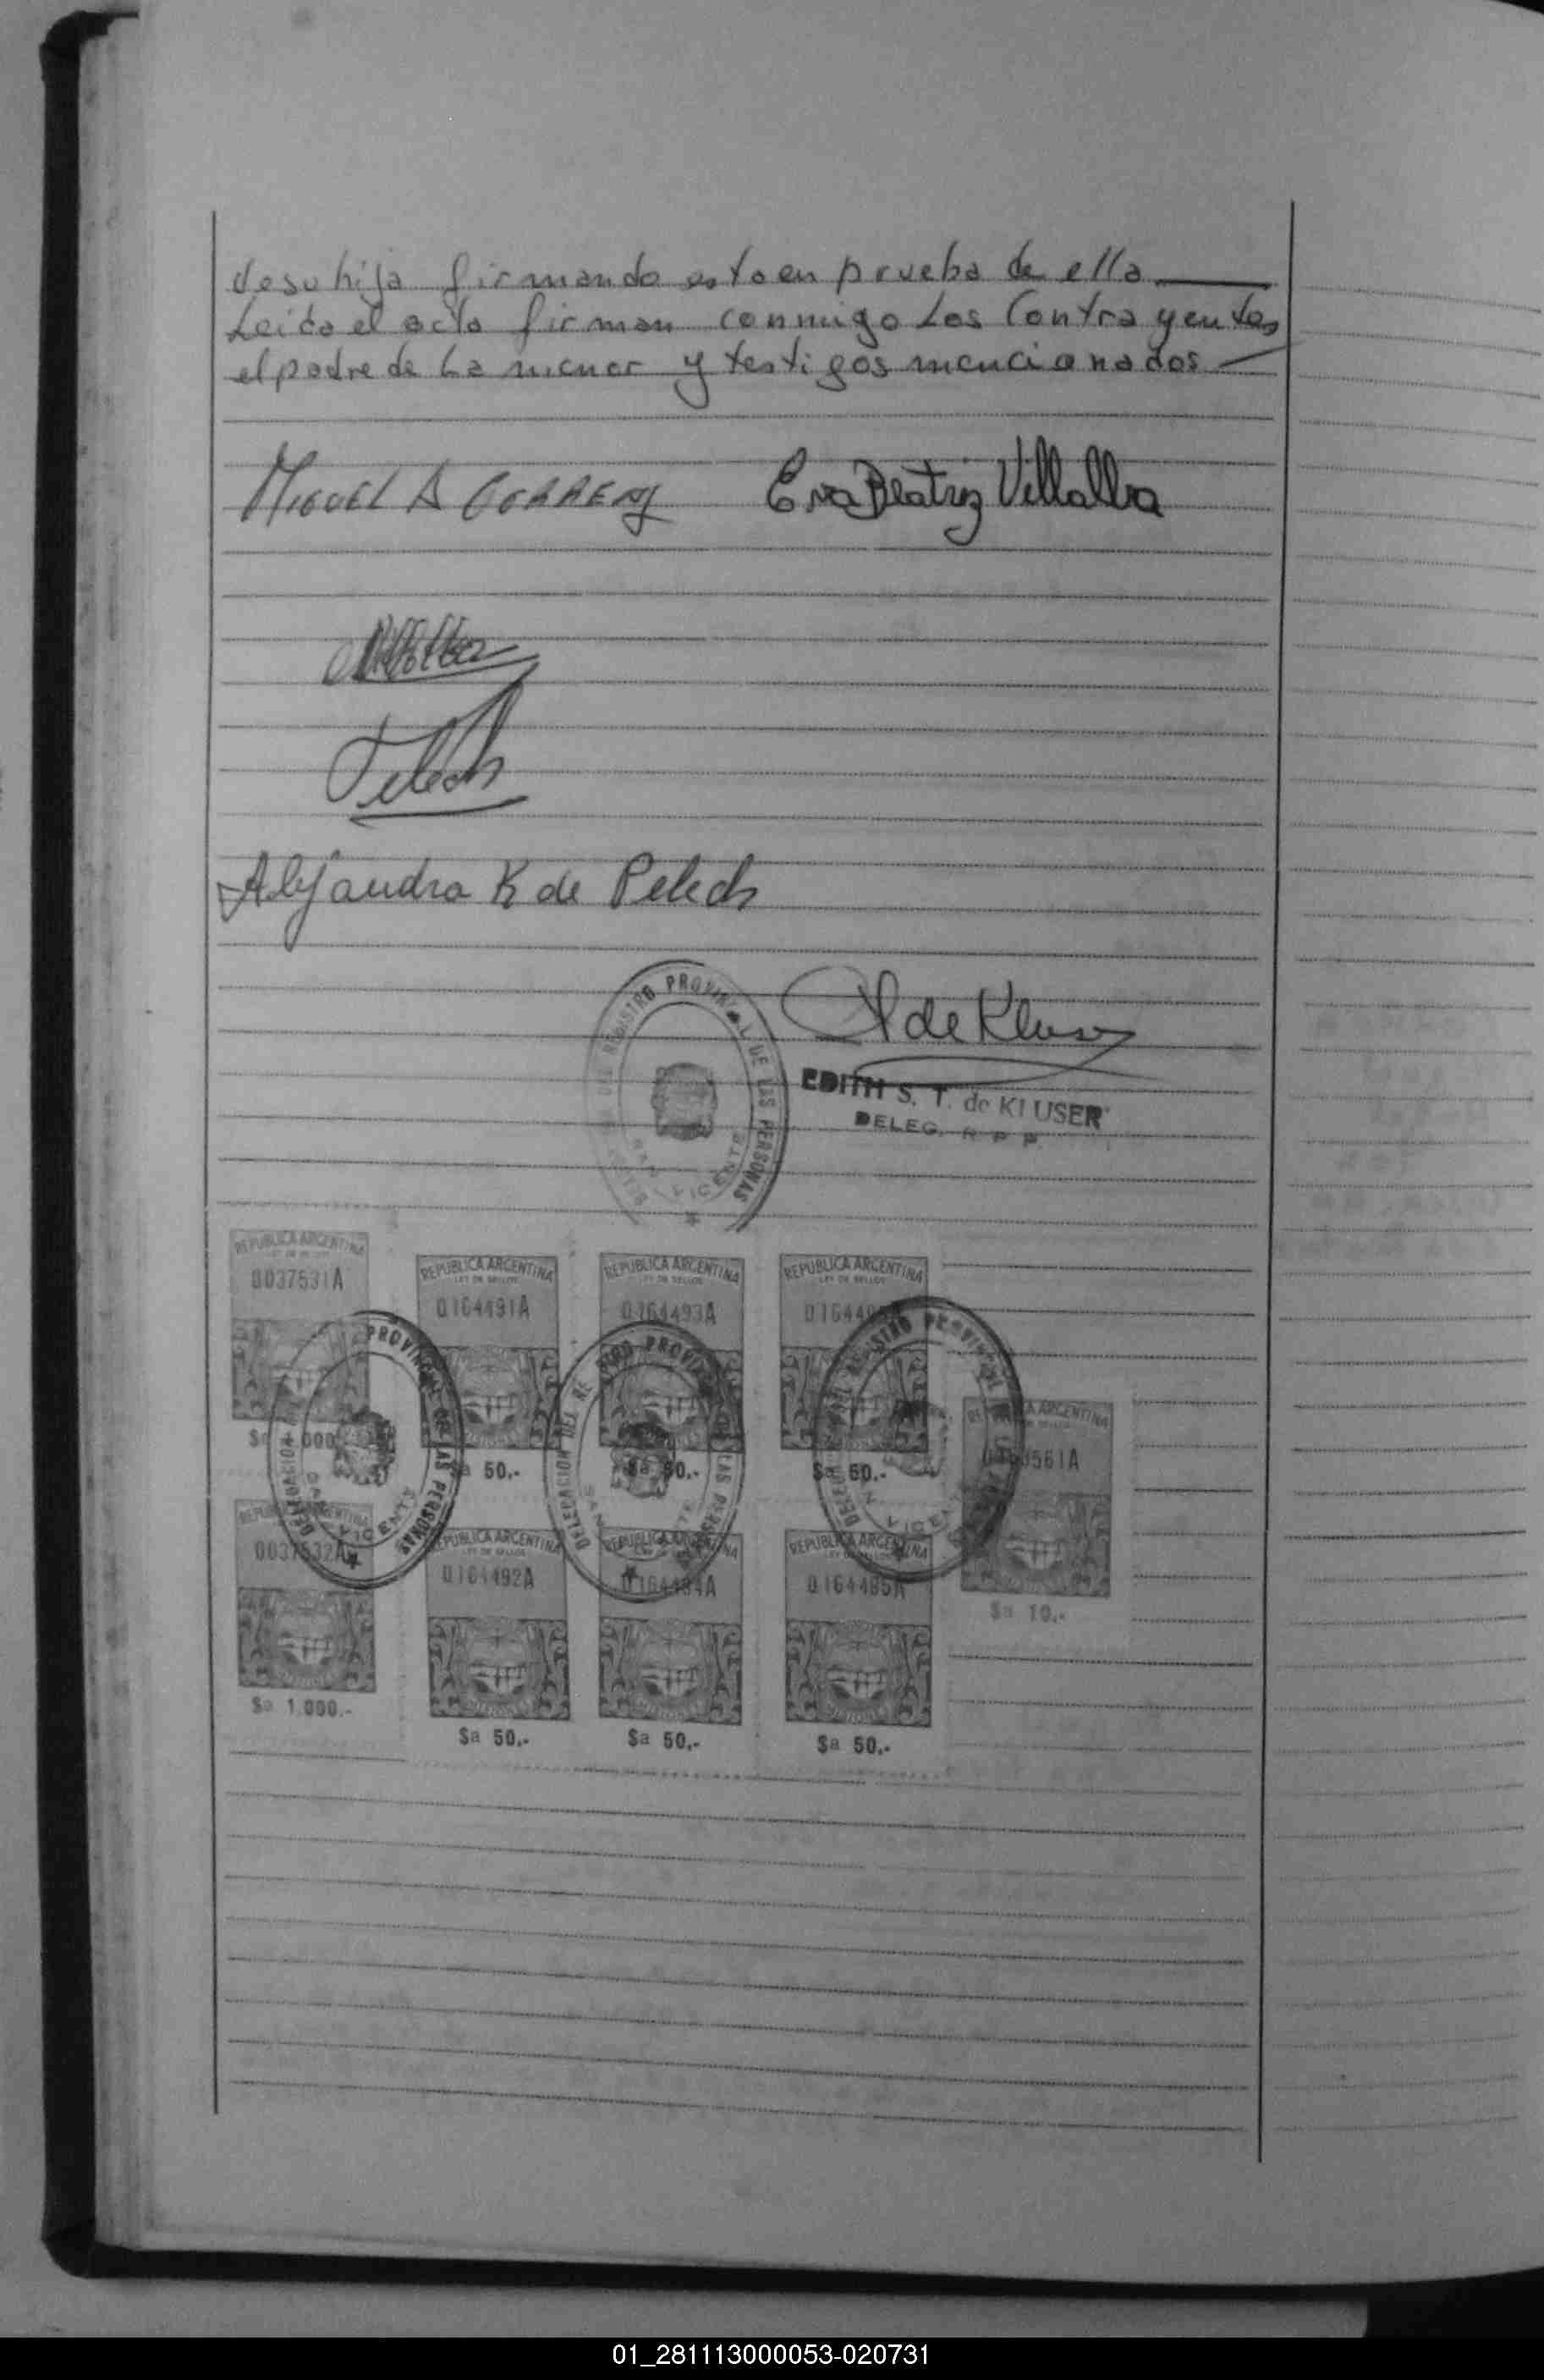 de su hija firmando esto en prueba de ello
Leída el acta firman conmigo Los Contrayentes
el padre de La menor y testigos mencionados
MIGUEL A
Eva Beatriz Villalba
Villalba
Pelech
Alejandra K de Pelech
de Kluser
EDITH S. T. de KLUSER
DELEG. R P P
REGISTRO PROVINCIAL DE LAS PERSONAS
SAN VICENTE
REPUBLICA ARGENTINA
LEY DE SELLOS
0037531A
REPUBLICA ARGENTINA
LEY DE SELLOS
0164491A
$a 50.-
REPUBLICA ARGENTINA
LEY DE SELLOS
0164493A
$a 50.-
REPUBLICA ARGENTINA
LEY DE SELLOS
$a 50.-
PROVINCIAL DE LAS PERSONAS
DELEGACION
VICENTE
DELEGACION DEL REGISTRO PROVINCIAL DE LAS PERSONAS
SAN VICENTE
REGISTRO PROVINCIAL
VICENTE
REPUBLICA ARGENTINA
561A
$a 10.-
REPUBLICA ARGENTINA
0037532A
$a 1.000.-
REPUBLICA ARGENTINA
LEY DE SELLOS
0164492A
MISIONES
$a 50.-
REPUBLICA ARGENTINA
0164494A
MISIONES
$a 50.-
REPUBLICA ARGENTINA
MISIONES
$a 50.-
01_281113000053-020731